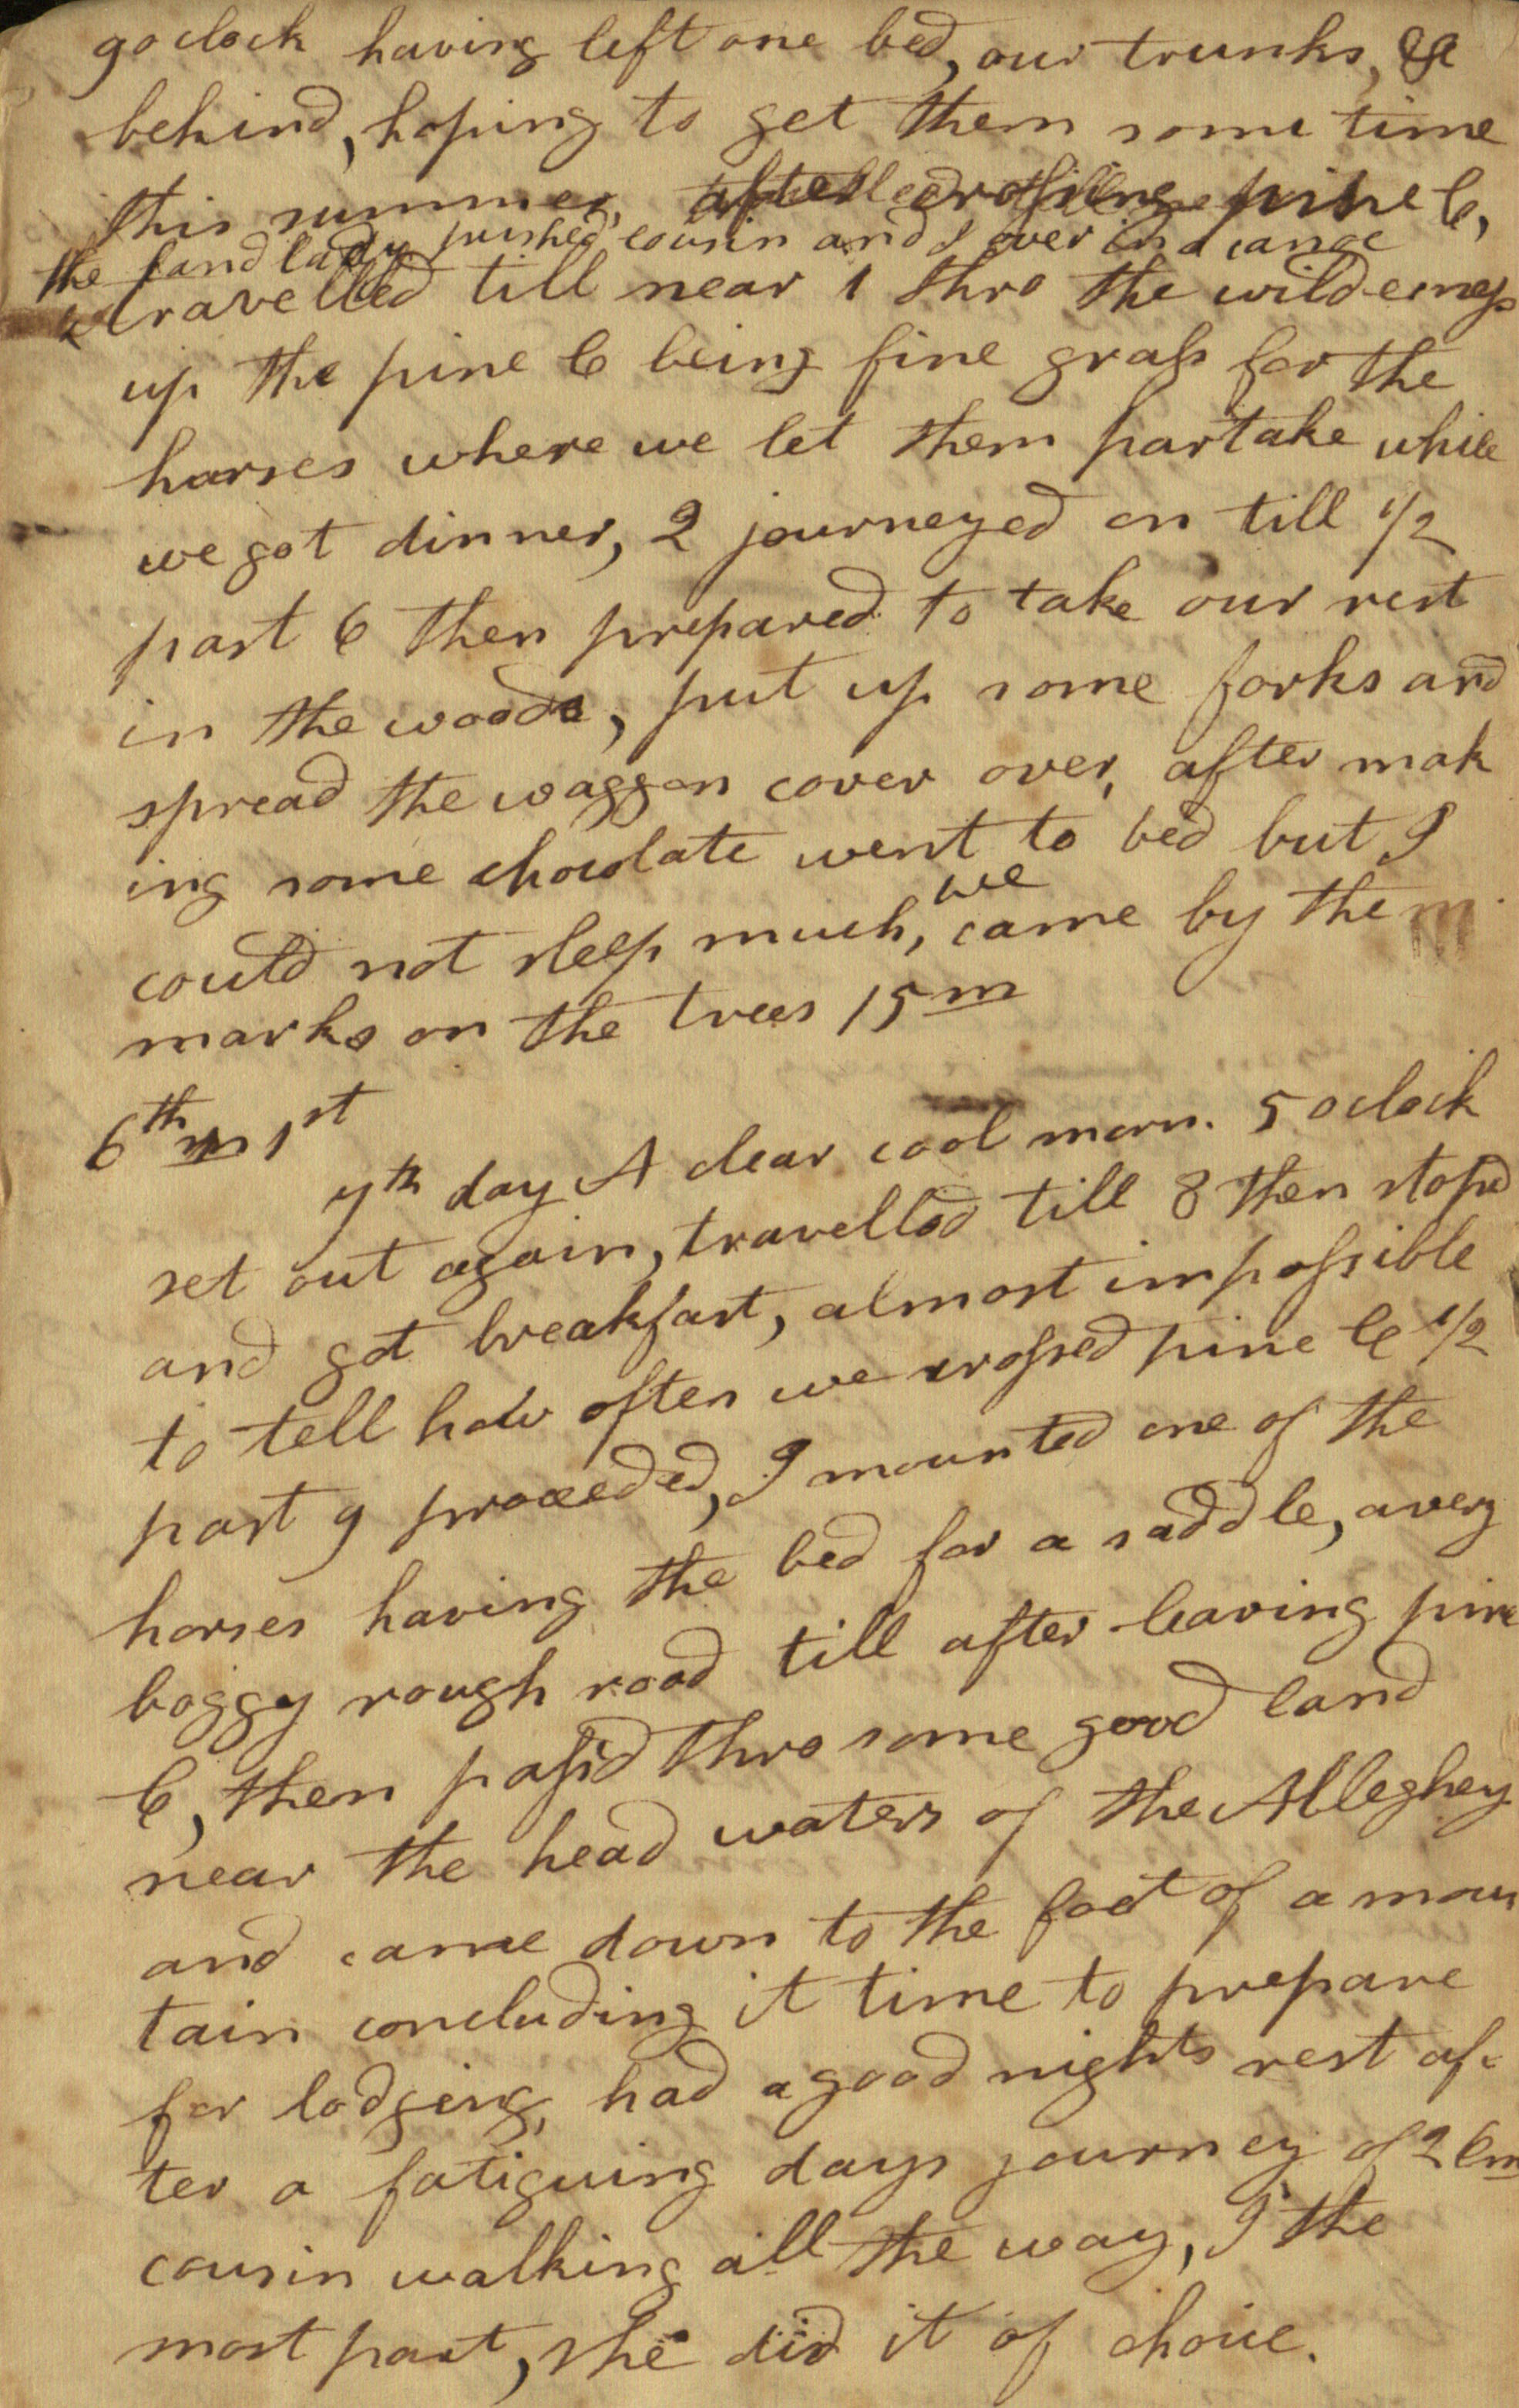 9 oclock having left one bed, our trunks, &c
behind, hoping to get them some time
this summer, after crossing pine C,
the landlady pushed cousin and I over in a canoe
& travelled till near 1 thro the wilderness
up the pine C being fine grass for the
horses where we let them partake while
we got dinner, 2 journeyed on till 1/2
past 6 then prepared to take our rest
in the woods, put up some forks and
spread the waggon cover over, after mak
ing some chocolate went to bed but I
could not sleep much, we came by the m
marks on the trees 15 m
6th m 1st
7th day A clear cool morn. 5 oclock
set out again, travelled till 8 then stop'd
and got breakfast, almost impossible
to tell how often we crossed pine C 1/2
past 9 proceeded, I mounted one of the
horses having the bed for a saddle, a very
boggy rough road till after leaving pine
C, then pass'd thro some good land
near the head waters of the Alleghey
and came down to the foot of a moun
tain concluding it time to prepare
for lodging, had a good nights rest af-
ter a fatiguing days journey of 26 m
cousin walking all the way, I the
most part, she did it of choice.